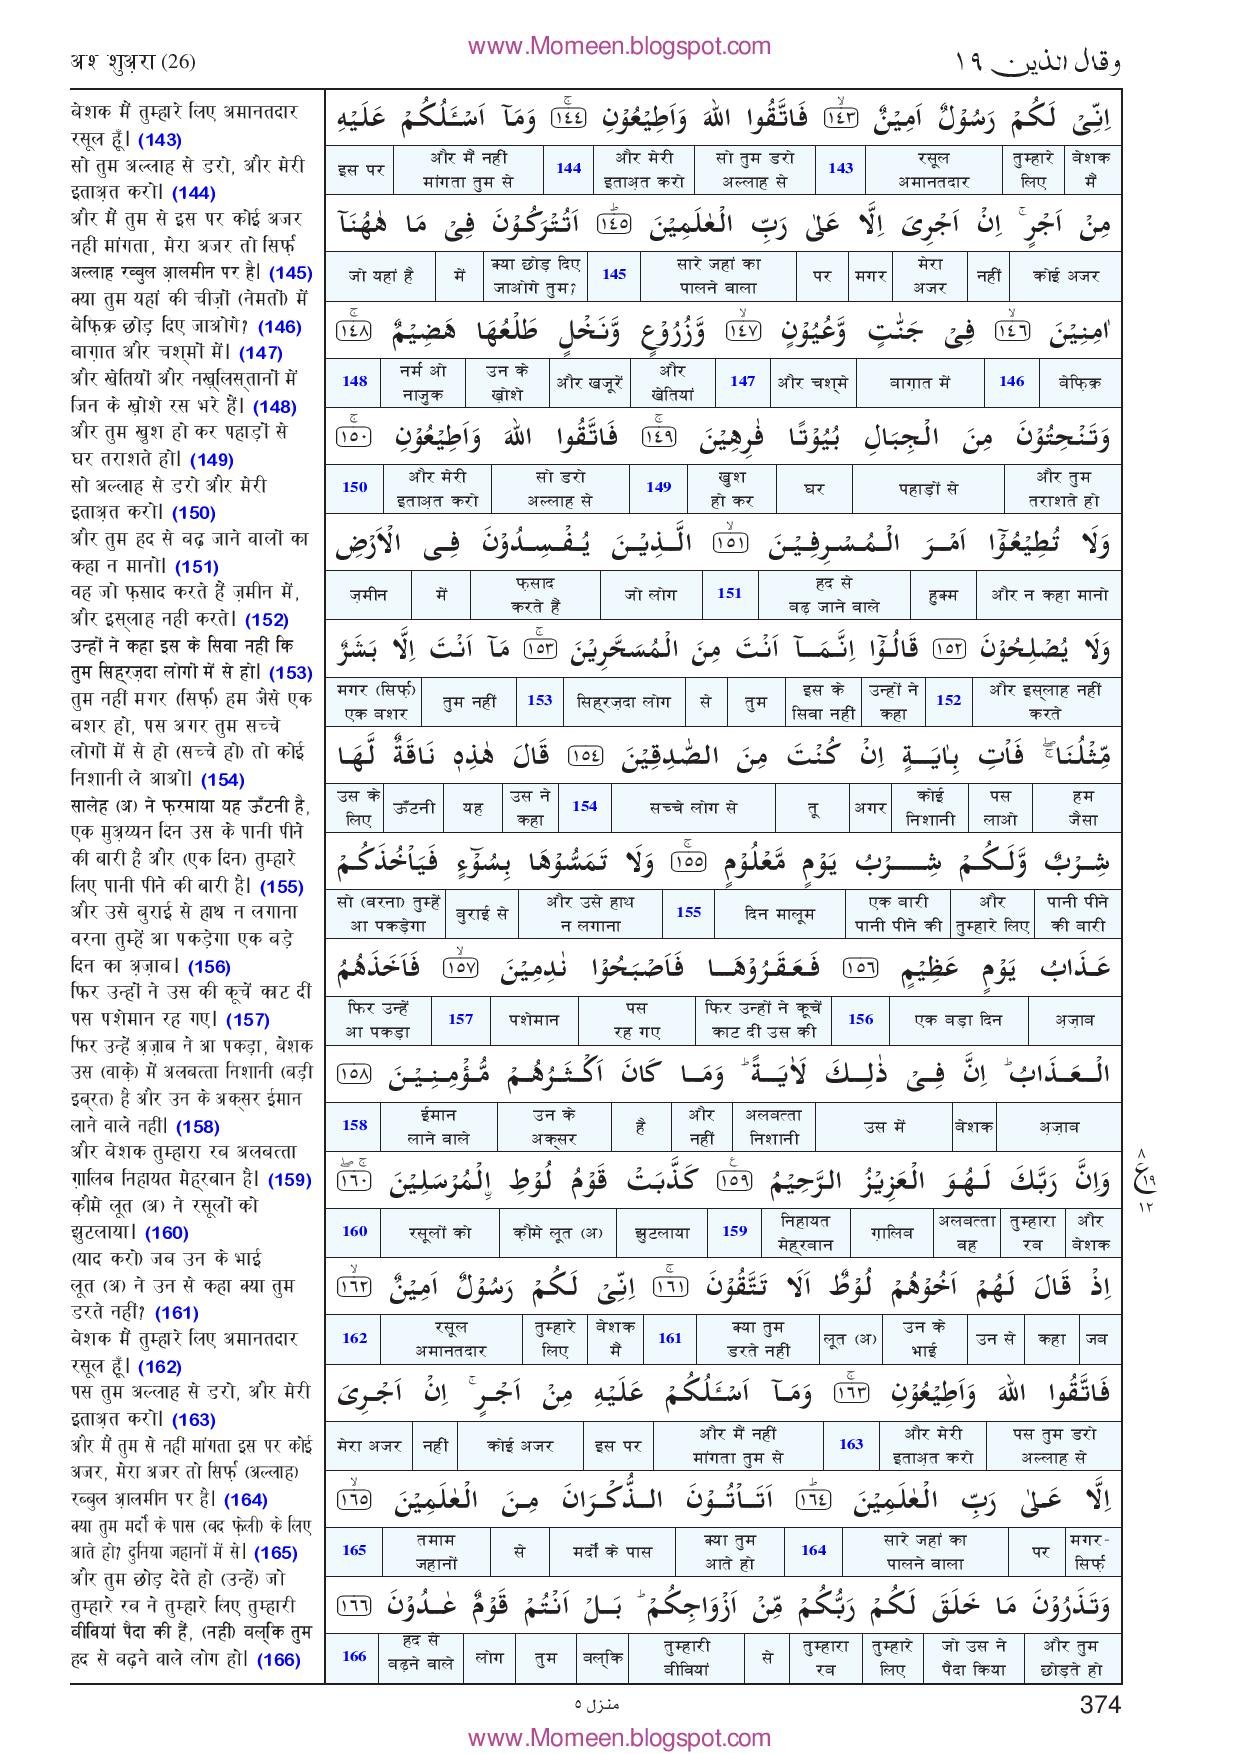 www.Momeen.blogspot.com
अश शुअ़रा (26)
وقال الذین ١٩
बेशक मैं तुम्हारे लिए अमानतदार
रसूल हूँ। (143)
सो तुम अल्लाह से डरो, और मेरी
इताअ़त करो। (144)
और मैं तुम से इस पर कोई अजर
नहीं मांगता, मेरा अजर तो सिर्फ़
अल्लाह रब्बुल आ़लमीन पर है। (145)
क्या तुम यहां की चीज़ों (नेमतों) में
बेफ़िक्र छोड़ दिए जाओगे? (146)
बाग़ात और चश्मों में। (147)
और खेतियों और नख़्लिस्तानों में
जिन के ख़ोशे रस भरे हैं। (148)
और तुम ख़ुश हो कर पहाड़ों से
घर तराशते हो। (149)
सो अल्लाह से डरो और मेरी
इताअ़त करो। (150)
और तुम हद से बढ़ जाने वालों का
कहा न मानो। (151)
वह जो फ़साद करते हैं ज़मीन में,
और इस्लाह नहीं करते। (152)
उन्हों ने कहा इस के सिवा नहीं कि
तुम सिह्रज़दा लोगों में से हो। (153)
तुम नहीं मगर (सिर्फ़) हम जैसे एक
बशर हो, पस अगर तुम सच्चे
लोगों में से हो (सच्चे हो) तो कोई
निशानी ले आओ। (154)
सालेह (अ) ने फ़रमाया यह ऊँटनी है,
एक मुअ़य्यन दिन उस के पानी पीने
की बारी है और (एक दिन) तुम्हारे
लिए पानी पीने की बारी है। (155)
और उसे बुराई से हाथ न लगाना
वरना तुम्हें आ पकड़ेगा एक बड़े
दिन का अ़ज़ाब। (156)
फिर उन्हों ने उस की कूचें काट दीं
पस पशेमान रह गए। (157)
फिर उन्हें अ़ज़ाब ने आ पकड़ा, बेशक
उस (वाक़े) में अलबत्ता निशानी (बड़ी
इब्रत) है और उन के अक्सर ईमान
लाने वाले नहीं। (158)
और बेशक तुम्हारा रब अलबत्ता
ग़ालिब निहायत मेह्रबान है। (159)
क़ौमे लूत (अ) ने रसूलों को
झुटलाया। (160)
(याद करो) जब उन के भाई
लूत (अ) ने उन से कहा क्या तुम
डरते नहीं? (161)
बेशक मैं तुम्हारे लिए अमानतदार
रसूल हूँ। (162)
पस तुम अल्लाह से डरो, और मेरी
इताअ़त करो। (163)
और मैं तुम से नहीं मांगता इस पर कोई
अजर, मेरा अजर तो सिर्फ़ (अल्लाह)
रब्बुल आ़लमीन पर है। (164)
क्या तुम मर्दों के पास (बद फ़ेली) के लिए
आते हो? दुनिया जहानों में से। (165)
और तुम छोड़ देते हो (उन्हें) जो
तुम्हारे रब ने तुम्हारे लिए तुम्हारी
बीवियां पैदा की हैं, (नहीं) बल्कि तुम
हद से बढ़ने वाले लोग हो। (166)
اِنِّیْ لَكُمْ رَسُوْلٌ اَمِیْنٌۙ ﴿١٤٣﴾ فَاتَّقُوا اللّٰهَ وَاَطِیْعُوْنِۚ ﴿١٤٤﴾ وَمَاۤ اَسْـَٔلُكُمْ عَلَیْهِ
बेशक मैं तुम्हारे लिए रसूल अमानतदार 143 सो तुम डरो अल्लाह से और मेरी इताअ़त करो 144 और मैं नहीं मांगता तुम से इस पर
مِنْ اَجْرٍۚ اِنْ اَجْرِیَ اِلَّا عَلٰی رَبِّ الْعٰلَمِیْنَؕ ﴿١٤٥﴾ اَتُتْرَكُوْنَ فِیْ مَا هٰهُنَاۤ
कोई अजर नहीं मेरा अजर मगर पर सारे जहां का पालने वाला 145 क्या छोड़ दिए जाओगे तुम? में जो यहां है
اٰمِنِیْنَۙ ﴿١٤٦﴾ فِیْ جَنّٰتٍ وَّعُیُوْنٍۙ ﴿١٤٧﴾ وَّزُرُوْعٍ وَّنَخْلٍ طَلْعُهَا هَضِیْمٌۚ ﴿١٤٨﴾
बेफ़िक्र 146 बाग़ात में और चश्मे 147 और खेतियां और खजूरें उन के ख़ोशे नर्म ओ नाजुक 148
وَتَنْحِتُوْنَ مِنَ الْجِبَالِ بُیُوْتًا فٰرِهِیْنَۚ ﴿١٤٩﴾ فَاتَّقُوا اللّٰهَ وَاَطِیْعُوْنِۚ ﴿١٥٠﴾
और तुम तराशते हो पहाड़ों से घर ख़ुश हो कर 149 सो डरो अल्लाह से और मेरी इताअ़त करो 150
وَلَا تُطِیْعُوْۤا اَمْرَ الْمُسْرِفِیْنَۙ ﴿١٥١﴾ الَّذِیْنَ یُفْسِدُوْنَ فِی الْاَرْضِ
और न कहा मानो हुक्म हद से बढ़ जाने वाले 151 जो लोग फ़साद करते हैं में ज़मीन
وَلَا یُصْلِحُوْنَ ﴿١٥٢﴾ قَالُوْۤا اِنَّمَاۤ اَنْتَ مِنَ الْمُسَحَّرِیْنَۚ ﴿١٥٣﴾ مَاۤ اَنْتَ اِلَّا بَشَرٌ
और इस्लाह नहीं करते 152 उन्हों ने कहा इस के सिवा नहीं तुम से सिह्रज़दा लोग 153 तुम नहीं मगर (सिर्फ़) एक बशर
مِّثْلُنَاۖۚ فَاْتِ بِاٰیَةٍ اِنْ كُنْتَ مِنَ الصّٰدِقِیْنَ ﴿١٥٤﴾ قَالَ هٰذِهٖ نَاقَةٌ لَّهَا
हम जैसा पस लाओ कोई निशानी अगर तू सच्चे लोग से 154 उस ने कहा यह ऊँटनी उस के लिए
شِرْبٌ وَّلَكُمْ شِرْبُ یَوْمٍ مَّعْلُوْمٍۚ ﴿١٥٥﴾ وَلَا تَمَسُّوْهَا بِسُوْٓءٍ فَیَاْخُذَكُمْ
पानी पीने की बारी और तुम्हारे लिए एक बारी पानी पीने की दिन मालूम 155 और उसे हाथ न लगाना बुराई से सो (वरना) तुम्हें आ पकड़ेगा
عَذَابُ یَوْمٍ عَظِیْمٍ ﴿١٥٦﴾ فَعَقَرُوْهَا فَاَصْبَحُوْا نٰدِمِیْنَۙ ﴿١٥٧﴾ فَاَخَذَهُمُ
अ़ज़ाब एक बड़ा दिन 156 फिर उन्हों ने कूचें काट दीं उस की पस रह गए पशेमान 157 फिर उन्हें आ पकड़ा
الْعَذَابُؕ اِنَّ فِیْ ذٰلِكَ لَاٰیَةًؕ وَمَا كَانَ اَكْثَرُهُمْ مُّؤْمِنِیْنَ ﴿١٥٨﴾
अ़ज़ाब बेशक उस में अलबत्ता निशानी और नहीं है उन के अक्सर ईमान लाने वाले 158
وَاِنَّ رَبَّكَ لَهُوَ الْعَزِیْزُ الرَّحِیْمُ ﴿١٥٩﴾ كَذَّبَتْ قَوْمُ لُوْطِ ِ۟الْمُرْسَلِیْنَۚۖ ﴿١٦٠﴾
٨
ع ١٩
١٢
और बेशक तुम्हारा रब अलबत्ता वह ग़ालिब निहायत मेह्रबान 159 झुटलाया क़ौमे लूत (अ) रसूलों को 160
اِذْ قَالَ لَهُمْ اَخُوْهُمْ لُوْطٌ اَلَا تَتَّقُوْنَۚ ﴿١٦١﴾ اِنِّیْ لَكُمْ رَسُوْلٌ اَمِیْنٌۙ ﴿١٦٢﴾
जब कहा उन से उन के भाई लूत (अ) क्या तुम डरते नहीं 161 बेशक मैं तुम्हारे लिए रसूल अमानतदार 162
فَاتَّقُوا اللّٰهَ وَاَطِیْعُوْنِۚ ﴿١٦٣﴾ وَمَاۤ اَسْـَٔلُكُمْ عَلَیْهِ مِنْ اَجْرٍۚ اِنْ اَجْرِیَ
पस तुम डरो अल्लाह से और मेरी इताअ़त करो 163 और मैं नहीं मांगता तुम से इस पर कोई अजर नहीं मेरा अजर
اِلَّا عَلٰی رَبِّ الْعٰلَمِیْنَؕ ﴿١٦٤﴾ اَتَاْتُوْنَ الذُّكْرَانَ مِنَ الْعٰلَمِیْنَۙ ﴿١٦٥﴾
मगर-सिर्फ़ पर सारे जहां का पालने वाला 164 क्या तुम आते हो मर्दों के पास से तमाम जहानों 165
وَتَذَرُوْنَ مَا خَلَقَ لَكُمْ رَبُّكُمْ مِّنْ اَزْوَاجِكُمْؕ بَلْ اَنْتُمْ قَوْمٌ عٰدُوْنَ ﴿١٦٦﴾
और तुम छोड़ते हो जो उस ने पैदा किया तुम्हारे लिए तुम्हारा रब से तुम्हारी बीवियां बल्कि तुम लोग हद से बढ़ने वाले 166
منزل ٥
374
www.Momeen.blogspot.com